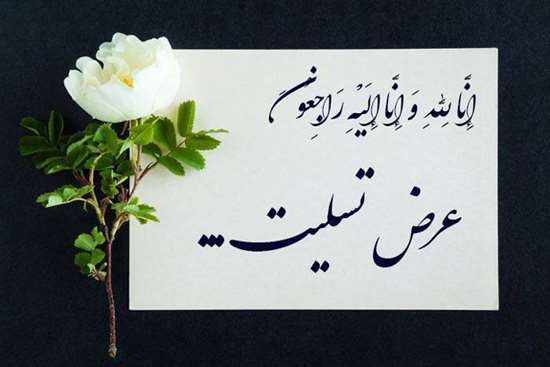 إِنَّا لِلّٰهِ وَ إِنَّا إِلَيْهِ رَاجِعونَ
عرض تسلیت...